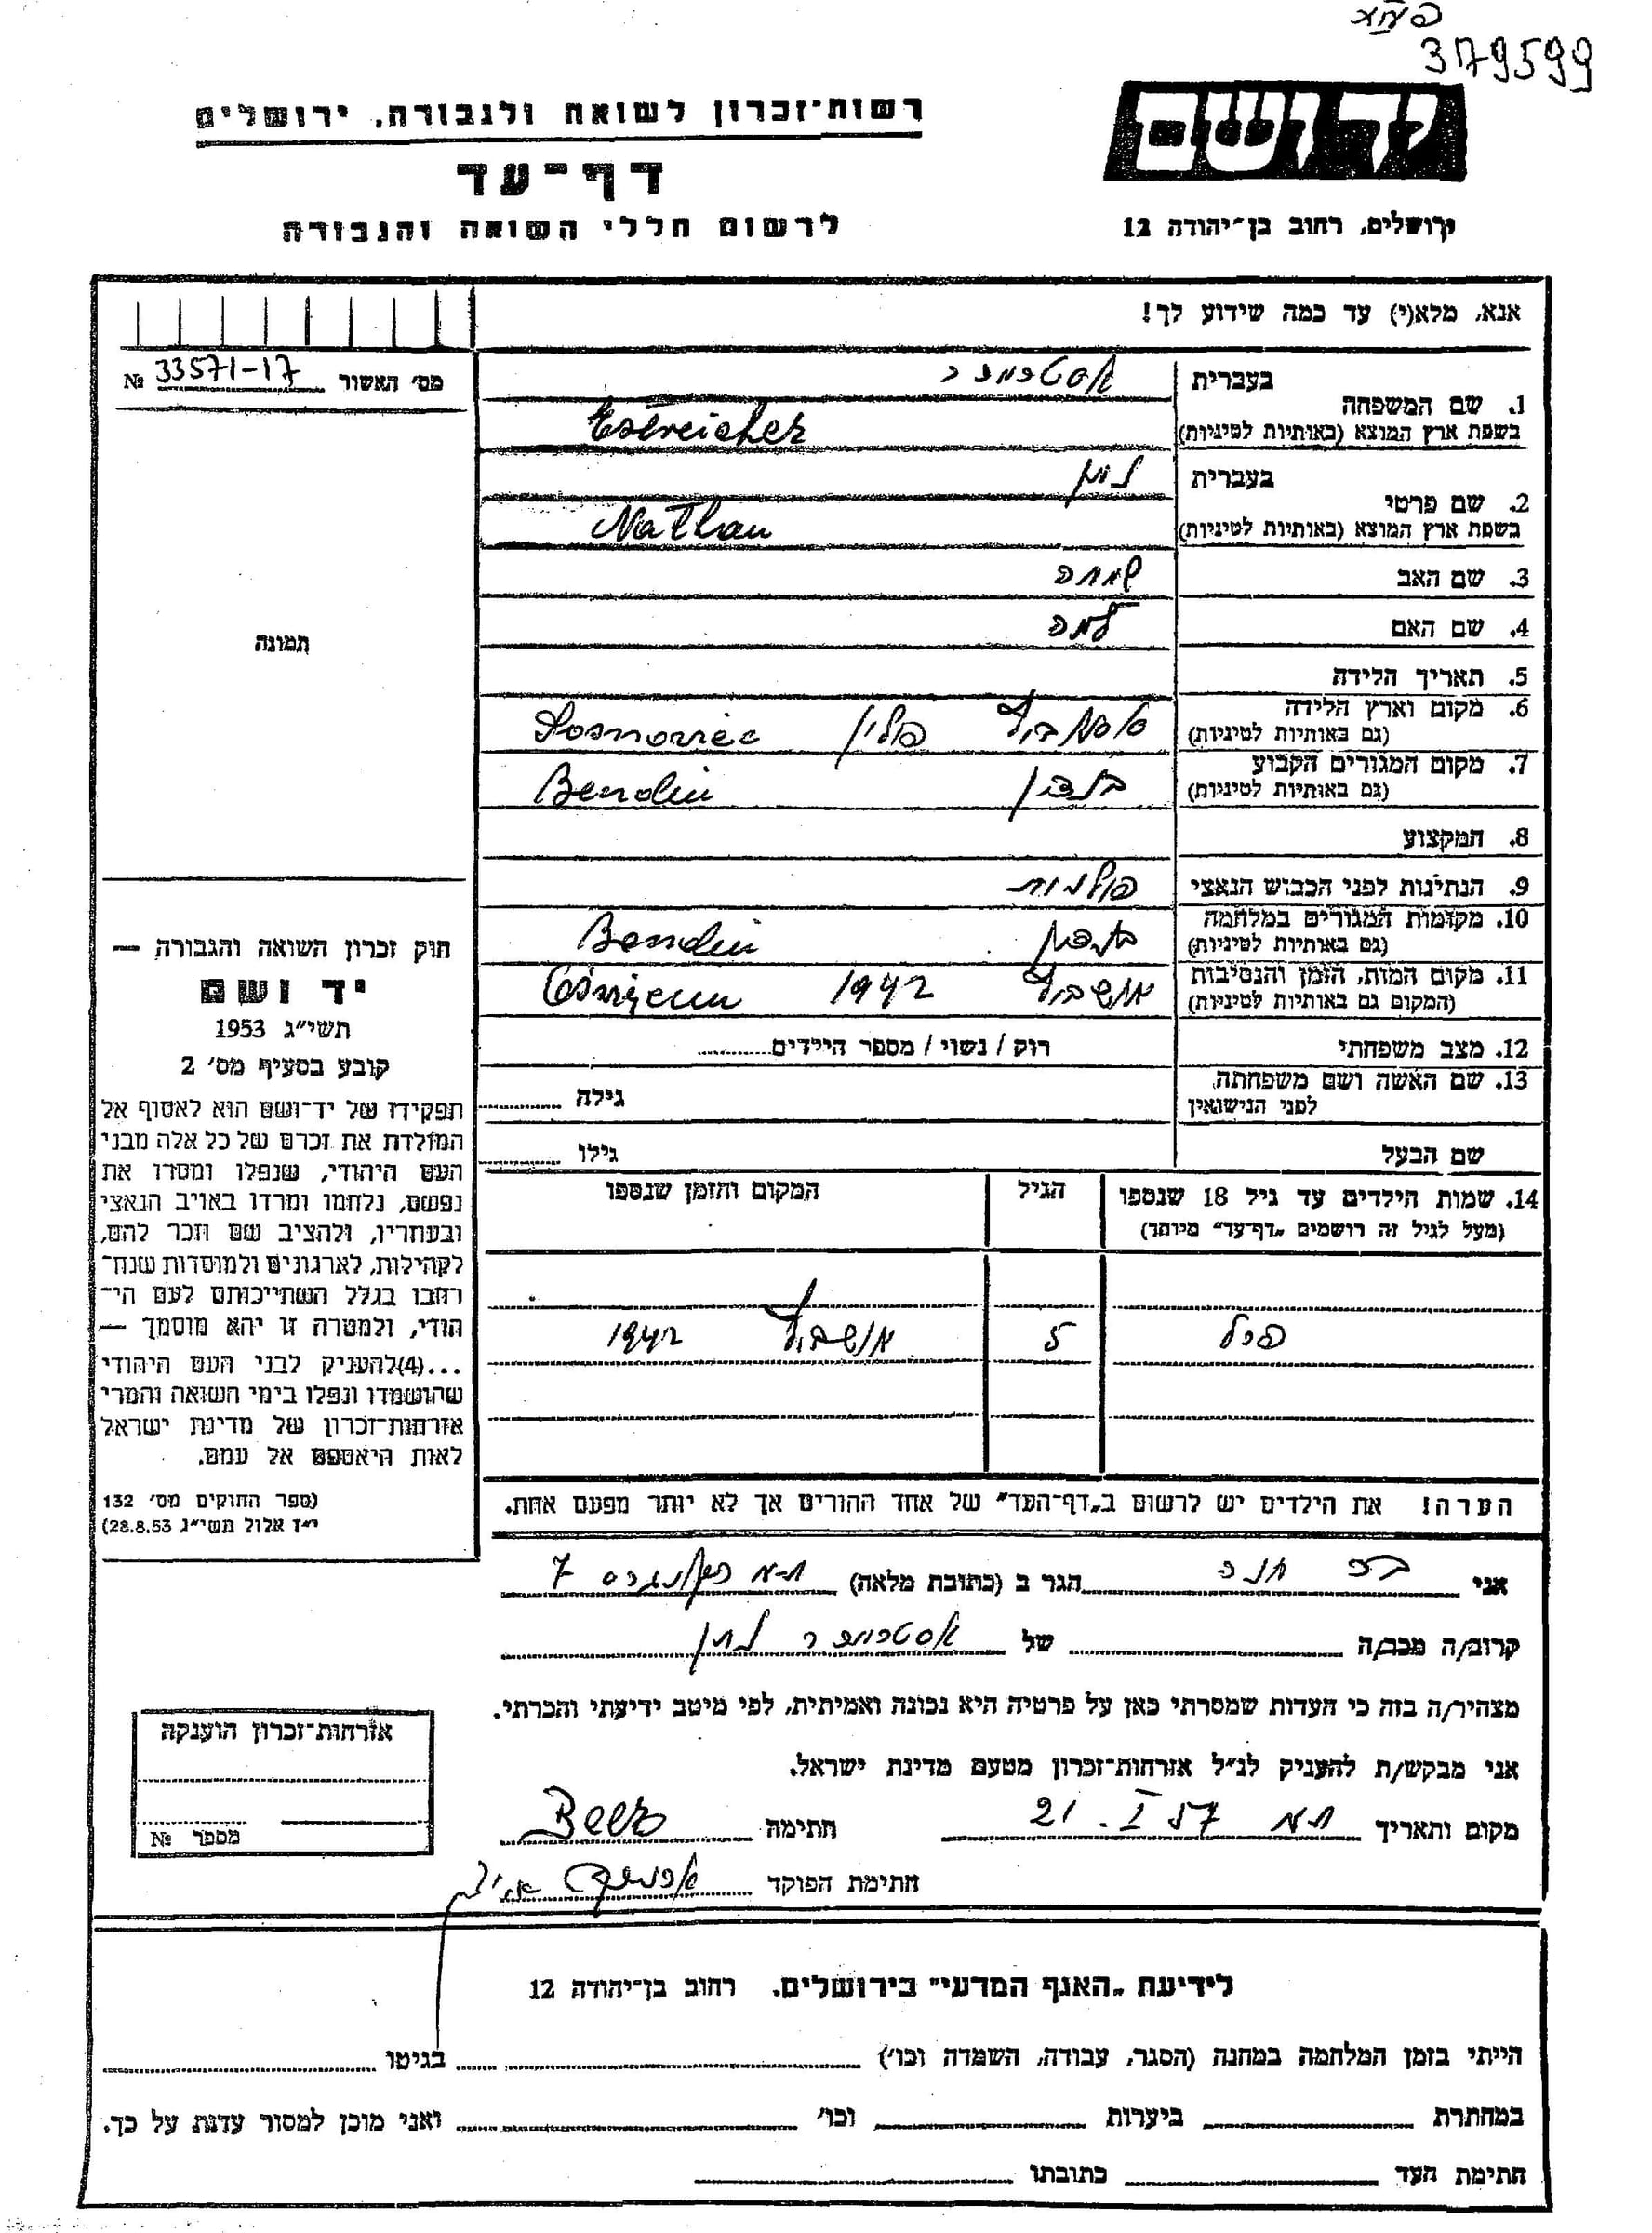 379599
ידושם
רשות־זכרון לשואה ולגבורה, ירושלים
דף־עד
לרשום חללי השואה והגבורה
ירושלים, רחוב בן־יהודה 12
אנא, מלא(י) עד כמה שידוע לך!
מס׳ האשור 33571-17 №
תמונה
1. שם המשפחה
בעברית אסטרייכר
בשפת ארץ המוצא (באותיות לטיניות) Estreicher
2. שם פרטי
בעברית נתן
בשפת ארץ המוצא (באותיות לטיניות) Nathan
3. שם האב שמחה
4. שם האם
5. תאריך הלידה
6. מקום וארץ הלידה
(גם באותיות לטיניות) סוסנוביץ פולין Sosnowiec
7. מקום המגורים הקבוע
(גם באותיות לטיניות) בנדין Bendin
8. המקצוע
9. הנתינות לפני הכבוש הנאצי פולנית
10. מקומות המגורים במלחמה
(גם באותיות לטיניות) בנדין Bendin
11. מקום המות, הזמן והנסיבות
(המקום גם באותיות לטיניות) אושביץ 1942
12. מצב משפחתי רוק / נשוי / מספר הילדים
13. שם האשה ושם משפחתה
לפני הנישואין גילה
שם הבעל גילו
14. שמות הילדים עד גיל 18 שנספו
(מעל לגיל זה רושמים „דף־עד״ מיוחד)
הגיל
המקום והזמן שנספו
5 אושביץ 1942
הערה! את הילדים יש לרשום ב„דף־העד״ של אחד ההורים אך לא יותר מפעם אחת.
חוק זכרון השואה והגבורה —
יד ושם
תשי״ג 1953
קובע בסעיף מס׳ 2
תפקידו של יד־ושם הוא לאסוף אל
המולדת את זכרם של כל אלה מבני
העם היהודי, שנפלו ומסרו את
נפשם, נלחמו ומרדו באויב הנאצי
ובעוזריו, ולהציב שם וזכר להם,
לקהילות, לארגונים ולמוסדות שנח־
רבו בגלל השתייכותם לעם הי־
הודי, ולמטרה זו יהא מוסמך —
...(4)להעניק לבני העם היהודי
שהושמדו ונפלו בימי השואה והמרי
אזרחות־זכרון של מדינת ישראל
לאות היאספם אל עמם.
(ספר החוקים מס׳ 132
י״ז אלול תשי״ג 28.8.53)
אני הגר ב (כתובת מלאה) 7
קרוב/ה מכר/ה של אסטרייכר נתן
מצהיר/ה בזה כי העדות שמסרתי כאן על פרטיה היא נכונה ואמיתית, לפי מיטב ידיעתי והכרתי.
אני מבקש/ת להעניק לנ״ל אזרחות־זכרון מטעם מדינת ישראל.
מקום ותאריך ת״א 21. I 57 חתימה
חתימת הפוקד
אזרחות־זכרון הוענקה
מספר №
לידיעת „האגף המדעי״ בירושלים, רחוב בן־יהודה 12
הייתי בזמן המלחמה במחנה (הסגר, עבודה, השמדה וכו׳) בגיטו
במחתרת ביערות וכו׳ ואני מוכן למסור עדות על כך.
חתימת העד כתובתו